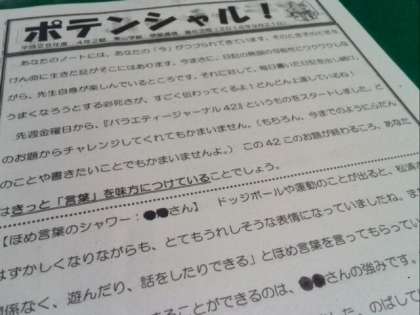 ポテンシャル！
平成28年度 4年2組
あなたのノートには、あなたの「今」がつづられてきています。そのときそのときを
けん命に生きた証がそこにはあります。今まさに、日記の無限の可能性にワクワクしな
がら、先生自身が楽しんでいるところです。それに対して、毎日書いた日記を出し続け、
うまくなろうとする必死さが、すごく伝わってくるよ！どんどん上達しているね！
先週金曜日から、『バラエティージャーナル42』というものをスタートしました。ど
のお題からチャレンジしてくれてもかまいません。（もちろん、今までのようにらだん
のことや書きたいことでもかまいませんよ。）この42このお題が終わるころ、あなた
はきっと「言葉」を味方につけていることでしょう。
【ほめ言葉のシャワー：●●さん】 ドッジボールや運動のことが出ると、松浦
はずかしくなりながらも、とてもうれしそうな表情になっていましたね。ま
関係なく、遊んだり、話をしたりできる」とほめ言葉を言ってもらってい
ることができるのは、●●さんの強みです。
した。のばして